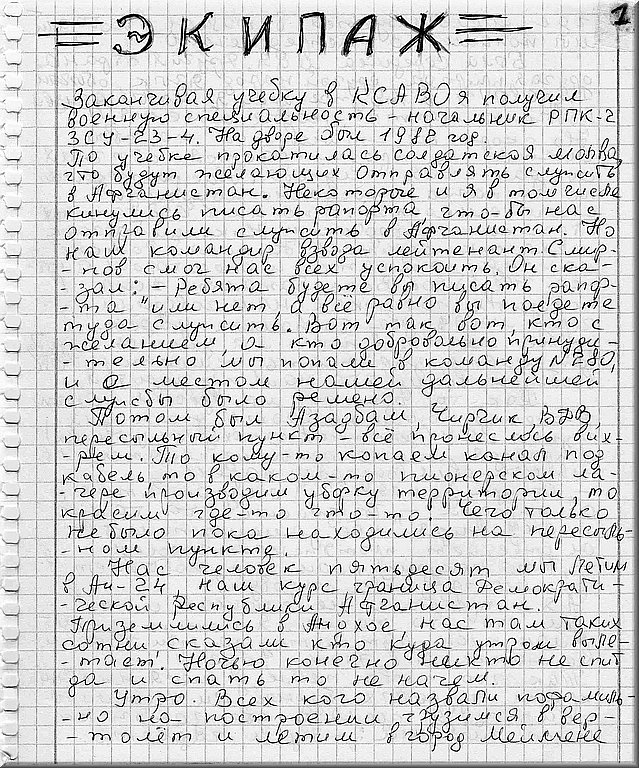 1
ЭКИПАЖ
Заканчивая учебку в КСАВО я получил
военную специальность - начальник РПК-2
ЗСУ-23-4. На дворе был 1982 год.
По учебке прокатилась солдатская молва,
что будут желающих отправлять служить
в Афганистан. Некоторые и я в том числе
кинулись писать рапорта, что-бы нас
отправили служить в Афганистан. Но
наш командир взвода лейтенант Смир-
-нов смог нас всех успокоить. Он ска-
-зал: - Ребята будете вы писать рапор-
-та "или нет, а всё равно вы поедете
туда служить. Вот так вот, кто с
желанием, а кто добровольно принуди-
-тельно мы попали в команду №280,
и с местом нашей дальнейшей
службы было решено.
Потом был Азадбаш, Чирчик, ВДВ,
пересыльный пункт - всё пронеслось вих-
-рем. То кому-то копаем канал под
кабель, то в каком-то пионерском ла-
-гере производим уборку территории, то
красим где-то что-то. Чего только
не было пока находились на пересыль-
-ном пункте.
Нас человек пятьдесят мы летим
в Ан-24, наш курс граница Демократи-
-ческой Республики Афганистан.
Приземлились в Анохое, нас там таких
сотни, сказали кто куда утром выле-
-тает. Ночью конечно никто не спит
да и спать то не на чем.
Утро. Всех кого назвали пофамиль-
-но на построении грузимся в вер-
-толёт и летим в город Меймене